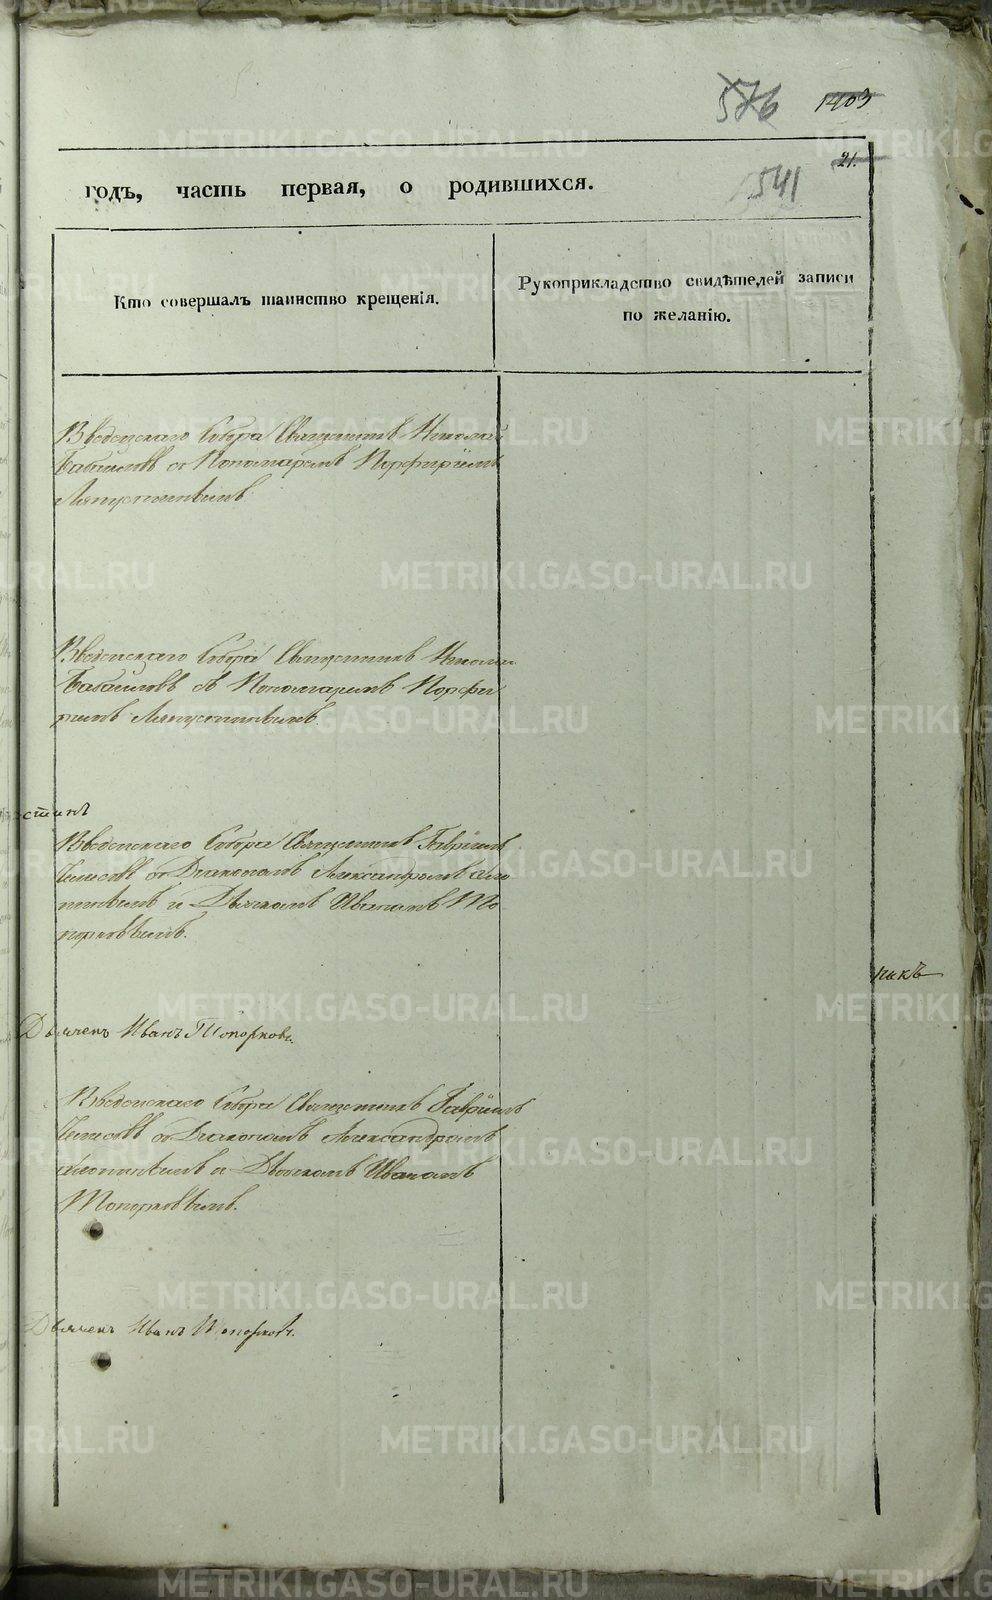 576 1403
21.
541
годъ, часть первая, о родившихся.
Кто совершалъ таинство крещенія.
Рукоприкладство свидѣтелей записи
по желанію.
Введенскаго Собора Священникъ Николай
съ Пономаремъ Порфиріемъ
Ляпустинымъ
Введенскаго Собора Священникъ Никола
съ Пономаремъ Порфи
ріемъ Ляпустинымъ
стикъ
Введенскаго Собора Священникъ Гавріилъ
съ Діакономъ Александромъ
и Дьячкомъ Иваномъ То
порковымъ.
никъ
Дьячекъ Иванъ Топорковъ.
Введенскаго Собора Священникъ Гавріилъ
съ Діакономъ Александромъ
и Дьячкомъ Иваномъ
Топорковымъ.
Дьячекъ Иванъ Топорковъ.
METRIKI.GASO-URAL.RU